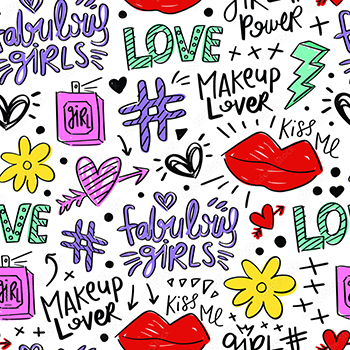 fabulous
GIRLS
LOVE
GIRL
Power
Makeup
Lover
#
GIRL
Kiss
Me
LOVE
#
fabulous
GIRLS
LOVE
GIRL
Makeup
Lover
Kiss
Me
GIRL